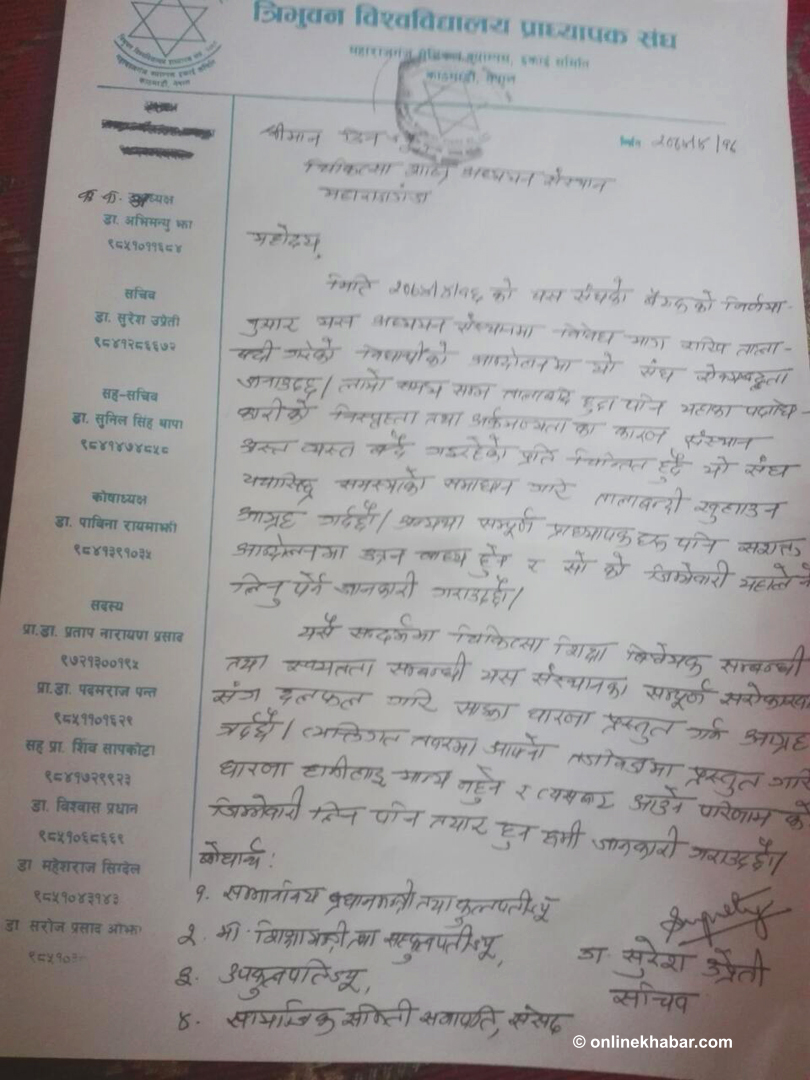 त्रिभुवन विश्वविद्यालय प्राध्यापक संघ
महाराजगंज मेडिकल क्याम्पस, इकाई समिति
काठमाडौं, नेपाल
मिति
श्रीमान डिन
चिकित्सा शास्त्र अध्ययन संस्थान
महाराजगंज
महोदय,
मिति को यस संघको बैठकको निर्णया-
नुसार यस अध्ययन संस्थानमा विविध माग राखि ताला-
बन्दी गरेको विद्यार्थीको आन्दोलनमा यो संघ ऐक्यबद्धता
जनाउदछ। लामो समय सम्म तालाबन्दि हुदा पनि यहाका पदाधि-
कारीको निस्पृहता तथा अर्कमण्यता का कारण संस्थान
अस्त व्यस्त बन्दै गइरहेको प्रति चिन्तित हुदै यो संघ
यथासिघ्र समस्याको समाधान गरि तालाबन्दी खुलाउन
आग्रह गर्दछौ। अन्यथा सम्पूर्ण प्राध्यापकहरु पनि सशक्त
आन्दोलनमा उत्रन बाध्य हुने र सो को जिम्मेवारी यहाले नै
लिनु पर्ने जानकारी गराउदछौ।
यसै सन्दर्भमा चिकित्सा शिक्षा विधेयक सम्बन्धी
तथा स्वायतता सम्बन्धी यस संस्थानका सम्पूर्ण सरोकारवाला
संग छलफल गरि साझा धारणा प्रस्तुत गर्न आग्रह
गर्दछौ। व्यक्तिगत तवरमा आफ्नो प्रस्तुत गरि
धारणा हामीलाइ मान्य नहुने र त्यसबाट आउने परिणाम को
जिम्मेवारी लिन पनि तयार हुन हामी जानकारी गराउदछौ।
बोधार्थ:
१. सम्माननिय प्रधानमन्त्री तथा कुलपतीज्यू
२. मा. शिक्षामन्त्री तथा सहकुलपतीज्यू,
३. उपकुलपतिज्यू,
४. सामाजिक समिती सभापति, संसद
डा. सुरेश उप्रेती
सचिव
का. बा. अध्यक्ष
डा. अभिमन्यु झा
९८५१०११६८४
सचिव
डा. सुरेश उप्रेती
९८४१२८६६७२
सह-सचिव
डा. सुनिल सिंह थापा
९८४१४७४८५८
कोषाध्यक्ष
डा. पाबिना रायमाझी
९८४१३९१०३५
सदस्य
प्रा.डा. प्रताप नारायण प्रसाद
९७२१३००१९५
प्रा.डा. पदमराज पन्त
९८५११०१६२१
सह प्रा. शिव सापकोटा
९८४१७२९९२३
डा. विश्वास प्रधान
९८५१०६८६६९
डा महेशराज सिग्देल
९८५१०४३१४३
डा सरोज प्रसाद ओझा
© onlinekhabar.com